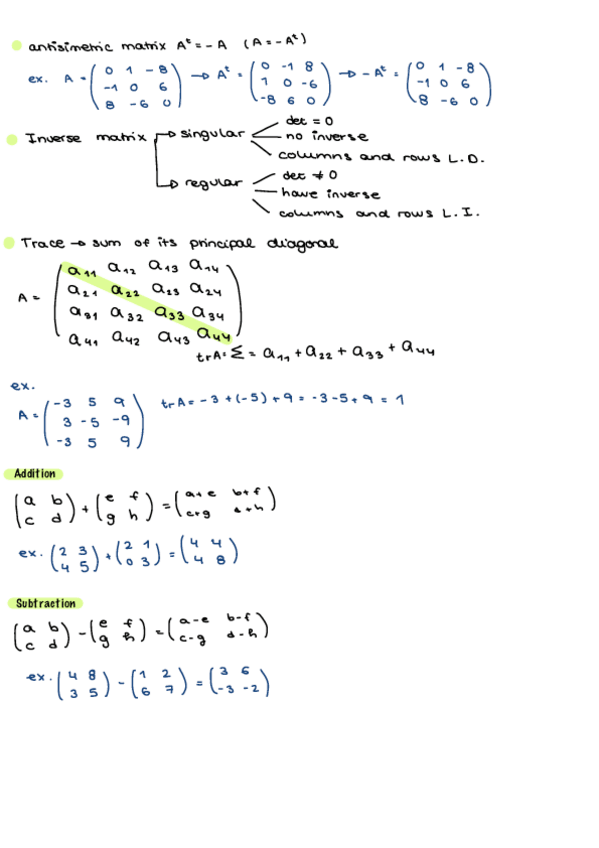 antisimetric matrix Aᵗ = -A (A = -Aᵗ)
ex. A = ( 0 1 -8 ; -1 0 6 ; 8 -6 0 ) → Aᵗ = ( 0 -1 8 ; 1 0 -6 ; -8 6 0 ) → -Aᵗ = ( 0 1 -8 ; -1 0 6 ; 8 -6 0 )
Inverse matrix → singular
det = 0
no inverse
columns and rows L.D.
→ regular
det ≠ 0
have inverse
columns and rows L.I.
Trace → sum of its principal diagonal
A = ( a11 a12 a13 a14 ; a21 a22 a23 a24 ; a31 a32 a33 a34 ; a41 a42 a43 a44 )
trA: Σ = a11 + a22 + a33 + a44
ex.
A = ( -3 5 9 ; 3 -5 -9 ; -3 5 9 ) trA = -3 + (-5) + 9 = -3 -5 + 9 = 1
Addition
( a b ; c d ) + ( e f ; g h ) = ( a+e b+f ; c+g d+h )
ex. ( 2 3 ; 4 5 ) + ( 2 1 ; 0 3 ) = ( 4 4 ; 4 8 )
Subtraction
( a b ; c d ) - ( e f ; g h ) = ( a-e b-f ; c-g d-h )
ex. ( 4 8 ; 3 5 ) - ( 1 2 ; 6 7 ) = ( 3 6 ; -3 -2 )